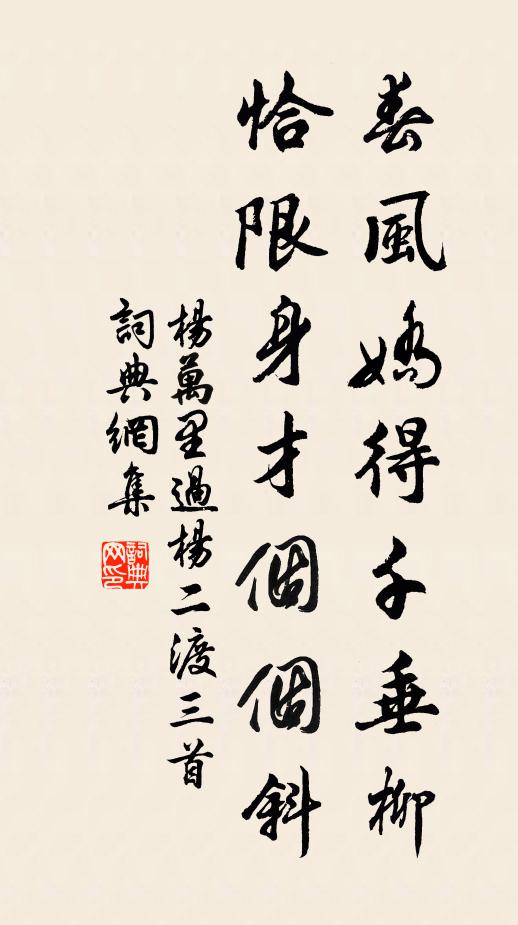 春風嬌得千垂柳
恰限身才個個斜
楊萬里過楊二渡三首
詞典網集
詞典网印